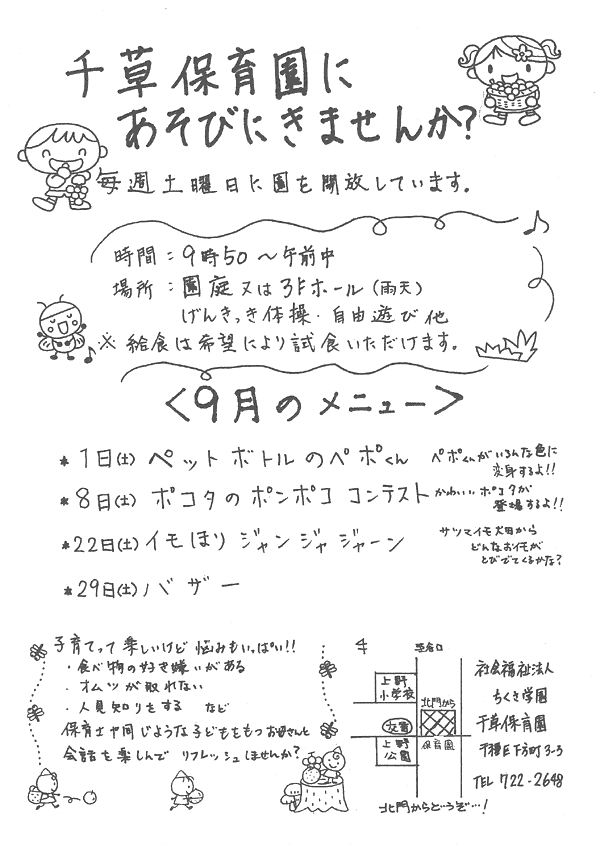 千草保育園に
あそびにきませんか?
毎週土曜日に園を開放しています。
時間：9時50～午前中
場所：園庭又は3Fホール（雨天）
げんきっき体操・自由遊び他
※給食は希望により試食いただけます。
<9月のメニュー>
*1日(土) ペットボトルのペポくん
ペポくんがいろんな色に
変身するよ!!
*8日(土) ポコタのポンポココンテスト
かわいいポコタが
登場するよ!!
*22日(土) イモほりジャンジャジャーン
サツマイモ畑から
どんなおイモが
とびでてくるかな?
*29日(土) バザー
子育てって楽しいけど悩みもいっぱい!!
・食べ物の好き嫌いがある
・オムツが取れない
・人見知りをする など
保育士や同じような子どもをもつお母さんと
会話を楽しんでリフレッシュしませんか?
上野
小学校
北門から
交番
保育園
上野
公園
北門からどうぞ…!
社会福祉法人
ちくさ学園
千草保育園
千種区下方町3-3
TEL 722-2648